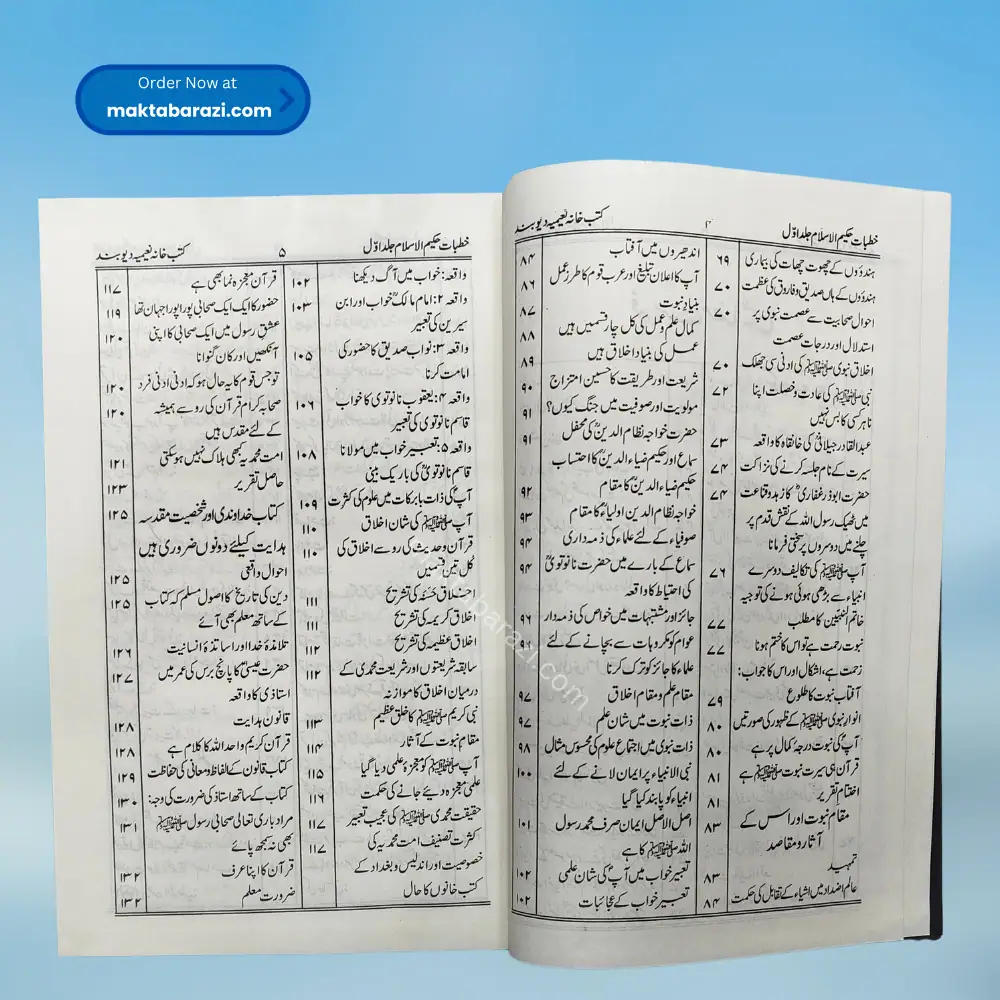 Order Now at
maktabarazi.com
خطبات حکیم الاسلام جلد اوّل ۴ کتب خانہ نعیمیہ دیوبند
ہندوؤں کے چھوت چھات کی بیماری ۶۹
ہندوؤں کے ہاں صدیق و فاروق کی عظمت ۷۰
احوال صحابیت سے عصمت نبوی پر ۷۰
استدلال اور درجات عصمت
اخلاق نبوی ﷺ کی ادنی سی جھلک ۷۰
نبی ﷺ کی عادت و خصلت اپنا ۷۲
نا ہر کسی کا بس نہیں
عبدالقادر جیلانیؒ کی خانقاہ کا واقعہ ۷۳
سیرت کے نام جلسہ کرنے کی نزاکت ۷۴
حضرت ابوذر غفاریؓ کا زہد و قناعت ۷۴
میں ٹھیک رسول اللہ کے نقش قدم پر
چلنے میں دوسروں پر سختی فرمانا
آپ ﷺ کی تکالیف دوسرے ۷۶
انبیاء سے بڑھی ہوئی ہونے کی توجیہ
خاتم النبیین کا مطلب ۷۷
نبوت رحمت ہے تو اس کا ختم ہونا ۷۷
زحمت ہے، اشکال اور اس کا جواب:
آفتاب نبوت کا طلوع ۷۹
انوار نبوی ﷺ کے ظہور کی صورتیں ۸۰
آپؐ کی نبوت درجۂ کمال پر ہے ۸۰
قرآن ہی سیرت نبوت ﷺ ہے ۸۱
اختتام تقریر ۸۱
مقام نبوت اور اس کے ۸۳
آثار و مقاصد
تمہید ۸۳
عالم اضداد میں اشیاء کے تقابل کی حکمت ۸۴
اندھیروں میں آفتاب ۸۴
آپ کا اعلان تبلیغ اور عرب قوم کا طرز عمل ۸۶
بنیاد نبوت ۸۷
کمال علم و عمل کی کل چار قسمیں ہیں ۸۸
عمل کی بنیاد اخلاق ہیں ۸۹
شریعت اور طریقت کا حسین امتزاج ۹۰
مولویت اور صوفیت میں جنگ کیوں؟ ۹۱
حضرت خواجہ نظام الدینؒ کی محفل ۹۱
سماع اور حکیم ضیاء الدینؒ کا احتساب
حکیم ضیاء الدینؒ کا مقام ۹۲
خواجہ نظام الدین اولیاءؒ کا مقام ۹۳
صوفیاء کے لئے علماء کی ذمہ داری ۹۴
سماع کے بارے میں حضرت نانوتویؒ ۹۴
کی احتیاط کا واقعہ
جائز اور مشتبہات میں خواص کی ذمہ دار ۹۶
عوام کو مکروہات سے بچانے کے لئے
علماء کا جائز کو ترک کرنا
مقام علم و مقام اخلاق ۹۷
ذات نبوت میں شان علم ۹۷
ذات نبوی میں اجتماع علوم کی محسوس مثال ۹۸
نبی الانبیاء پر ایمان لانے کے لئے ۱۰۰
انبیاء کو پابند کیا گیا
اصل الاصل ایمان صرف محمد رسول ۱۰۱
اللہ ﷺ کا ہے
تعبیر خواب میں آپؐ کی شان علمی ۱۰۲
تعبیر خواب کے عجائبات ۱۰۲
خطبات حکیم الاسلام جلد اوّل ۵ کتب خانہ نعیمیہ دیوبند
واقعہ: خواب میں آگ دیکھنا ۱۰۲
واقعہ ۲: امام مالکؒ خواب اور ابن ۱۰۳
سیرین کی تعبیر
واقعہ ۳: نواب صدیق کا حضور کی ۱۰۵
امامت کرنا
واقعہ ۴: یعقوب نانوتوی کا خواب ۱۰۶
قاسم نانوتوی کی تعبیر
واقعہ ۵: تعبیر خواب میں مولانا ۱۰۸
قاسم نانوتویؒ کی باریک بینی
آپؐ کی ذات بابرکات میں علوم کی کثرت ۱۰۹
آپ ﷺ کی شان اخلاق ۱۱۰
قرآن و حدیث کی رو سے اخلاق کی ۱۱۰
کُل تین قسمیں
اخلاق حسنہ کی تشریح ۱۱۱
اخلاق کریمہ کی تشریح ۱۱۱
اخلاق عظیمہ کی تشریح ۱۱۲
سابقہ شریعتوں اور شریعت محمدی کے ۱۱۲
درمیان اخلاق کا موازنہ
نبی کریم ﷺ کا خلق عظیم ۱۱۳
مقام نبوت کے آثار ۱۱۴
آپ ﷺ کو معجزہ علمی دیا گیا ۱۱۵
علمی معجزہ دیئے جانے کی حکمت ۱۱۶
حقیقت محمدی ﷺ کی عجیب تعبیر ۱۱۷
کثرت تصنیف امت محمدیہ کی ۱۱۷
خصوصیت اور اندلیس و بغداد کے
کتب خانوں کا حال
قرآن معجزہ نما بھی ہے ۱۱۷
حضور کا ایک ایک صحابی پورا پورا جہان تھا ۱۱۹
عشق رسول میں ایک صحابی کا اپنی ۱۲۰
آنکھیں اور کان گنوانا
تو جس قوم کا یہ حال ہو کہ ادنی ادنی فرد ۱۲۰
صحابہ کرام قرآن کی رو سے ہمیشہ ۱۲۰
کے لئے مقدس ہیں
امت محمدیہ کبھی ہلاک نہیں ہو سکتی ۱۲۱
حاصل تقریر ۱۲۳
کتاب خداوندی اور شخصیت مقدسہ ۱۲۵
ہدایت کیلئے دونوں ضروری ہیں
احوال واقعی ۱۲۵
دین کی تاریخ کا اصول مسلم کہ کتاب ۱۲۵
کے ساتھ معلم بھی آئے
تلامذۂ خدا اور اساتذۂ انسانیت ۱۲۶
حضرت عیسیٰؑ کا پانچ برس کی عمر میں ۱۲۷
استاذی کا واقعہ
قانون ہدایت ۱۲۸
قرآن کریم واحد اللہ کا کلام ہے ۱۲۸
کتاب قانون کے الفاظ و معانی کی حفاظت ۱۲۹
کتاب کے ساتھ استاذ کی ضرورت کی وجہ: ۱۳۰
مراد باری تعالی صحابی رسول ﷺ ۱۳۱
بھی نہ سمجھ پائے
قرآن کا اپنا عرف ۱۳۲
ضرورت معلم ۱۳۲
barazi.com